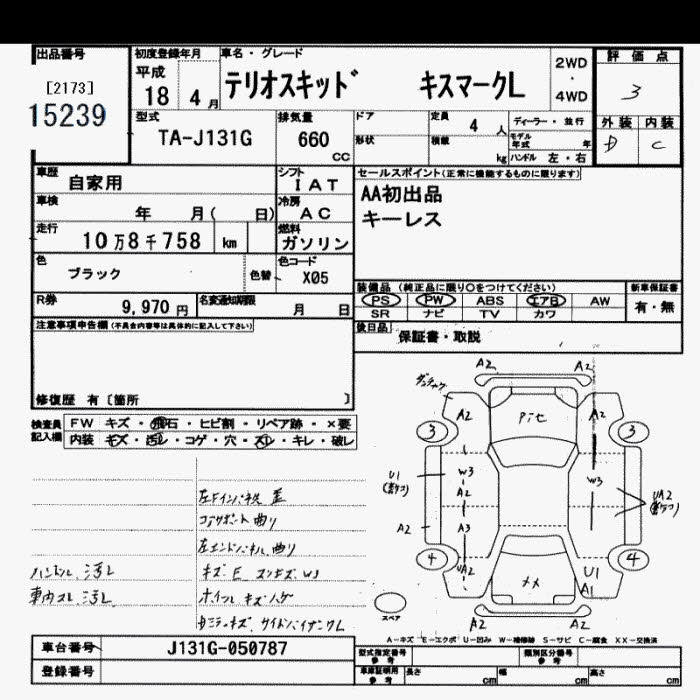 出品番号
[2173]
15239
初度登録年月
平成
18 4 月
車名・グレード
テリオスキッド キスマークL
2WD
・
4WD
評価点
3
外装 内装
D C
型式
TA-J131G
排気量
660
CC
ドア
形状
定員
4 人
積載
kg
ディーラー・並行
モデル年式 年
ハンドル 左・右
車歴
自家用
シフト
IAT
車検
年 月( 日)
冷房
AC
走行
10万8千758 km
燃料
ガソリン
色
ブラック
色替
色コード
X05
R券
9,970 円
名変通知期限
月 日
セールスポイント(正常に機能するものに限ります)
AA初出品
キーレス
装備品 (純正品に限り○をつけてください)
PS PW ABS エアB AW
SR ナビ TV カワ
新車保証書
有・無
後日品
保証書・取説
注意事項申告欄(不具合内容等は具体的に記入して下さい)
修復歴 有〔箇所 〕
検査員記入欄
FW キズ・飛石・ヒビ割・リペア跡・×要
内装 キズ・汚レ・コゲ・穴・スレ・キレ・破レ
コアサポート曲り
左エンドパネル曲り
ハンドル汚レ
キズ E スリキズ W3
ホイルキズハゲ
A2 A2
A2 A2
Pit
3 3
U1
W3
A2
W3
UA2
A2
A3
4 4
UA2
U1
A1
××
スペア
A2 A2
A-キズ E-エクボ U-凹み W-補修跡 S-サビ C-腐食 XX-交換済
車台番号
J131G-050787
登録番号
型式指定番号 参考
類別区分番号 参考
車庫証明用 参考
長さ cm
幅 cm
高さ cm